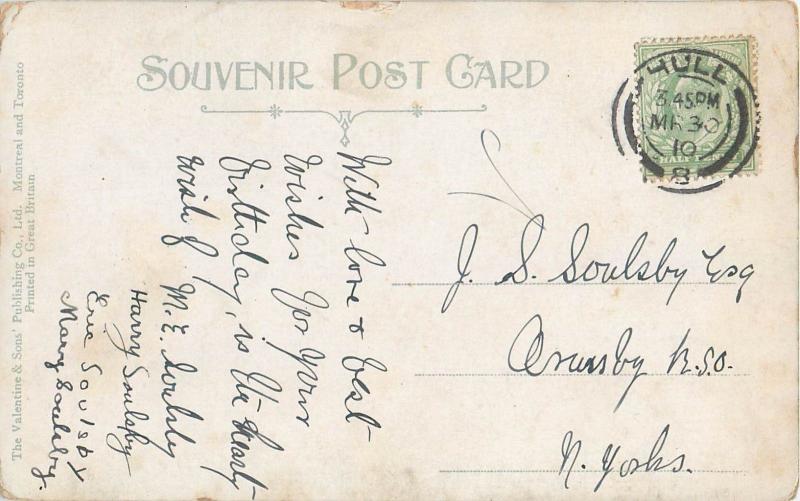 SOUVENIR POST CARD
The Valentine & Sons' Publishing Co., Ltd. Montreal and Toronto
Printed in Great Britain
HULL
3 45PM
MR 30
10
8
HALF
With love & best
wishes for your
Birthday, is the hearty
wish of M. E. Soulsby
Harry Soulsby
Eric Soulsby
Mary Soulsby.
J. S. Soulsby Esq
Ormsby R.S.O.
N. Yorks.